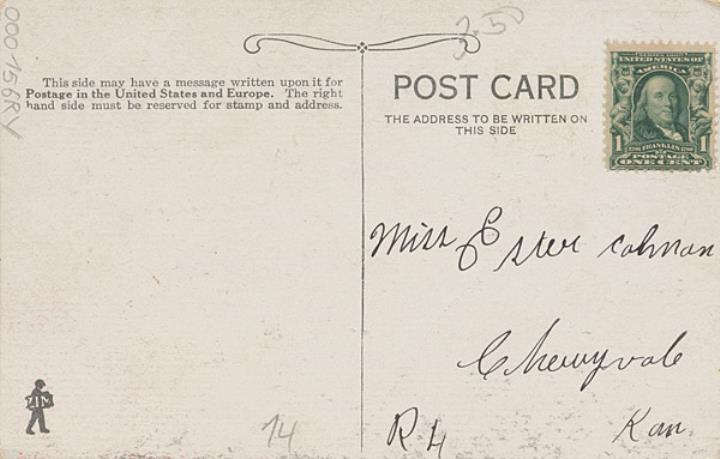 000156RY
3.50
This side may have a message written upon it for
Postage in the United States and Europe. The right
hand side must be reserved for stamp and address.
POST CARD
THE ADDRESS TO BE WRITTEN ON
THIS SIDE
UNITED STATES OF
AMERICA
1 FRANKLIN 1
POSTAGE
ONE CENT
Miss Ester Colman
Cherryvale
R 4 Kan.
ZIM
74